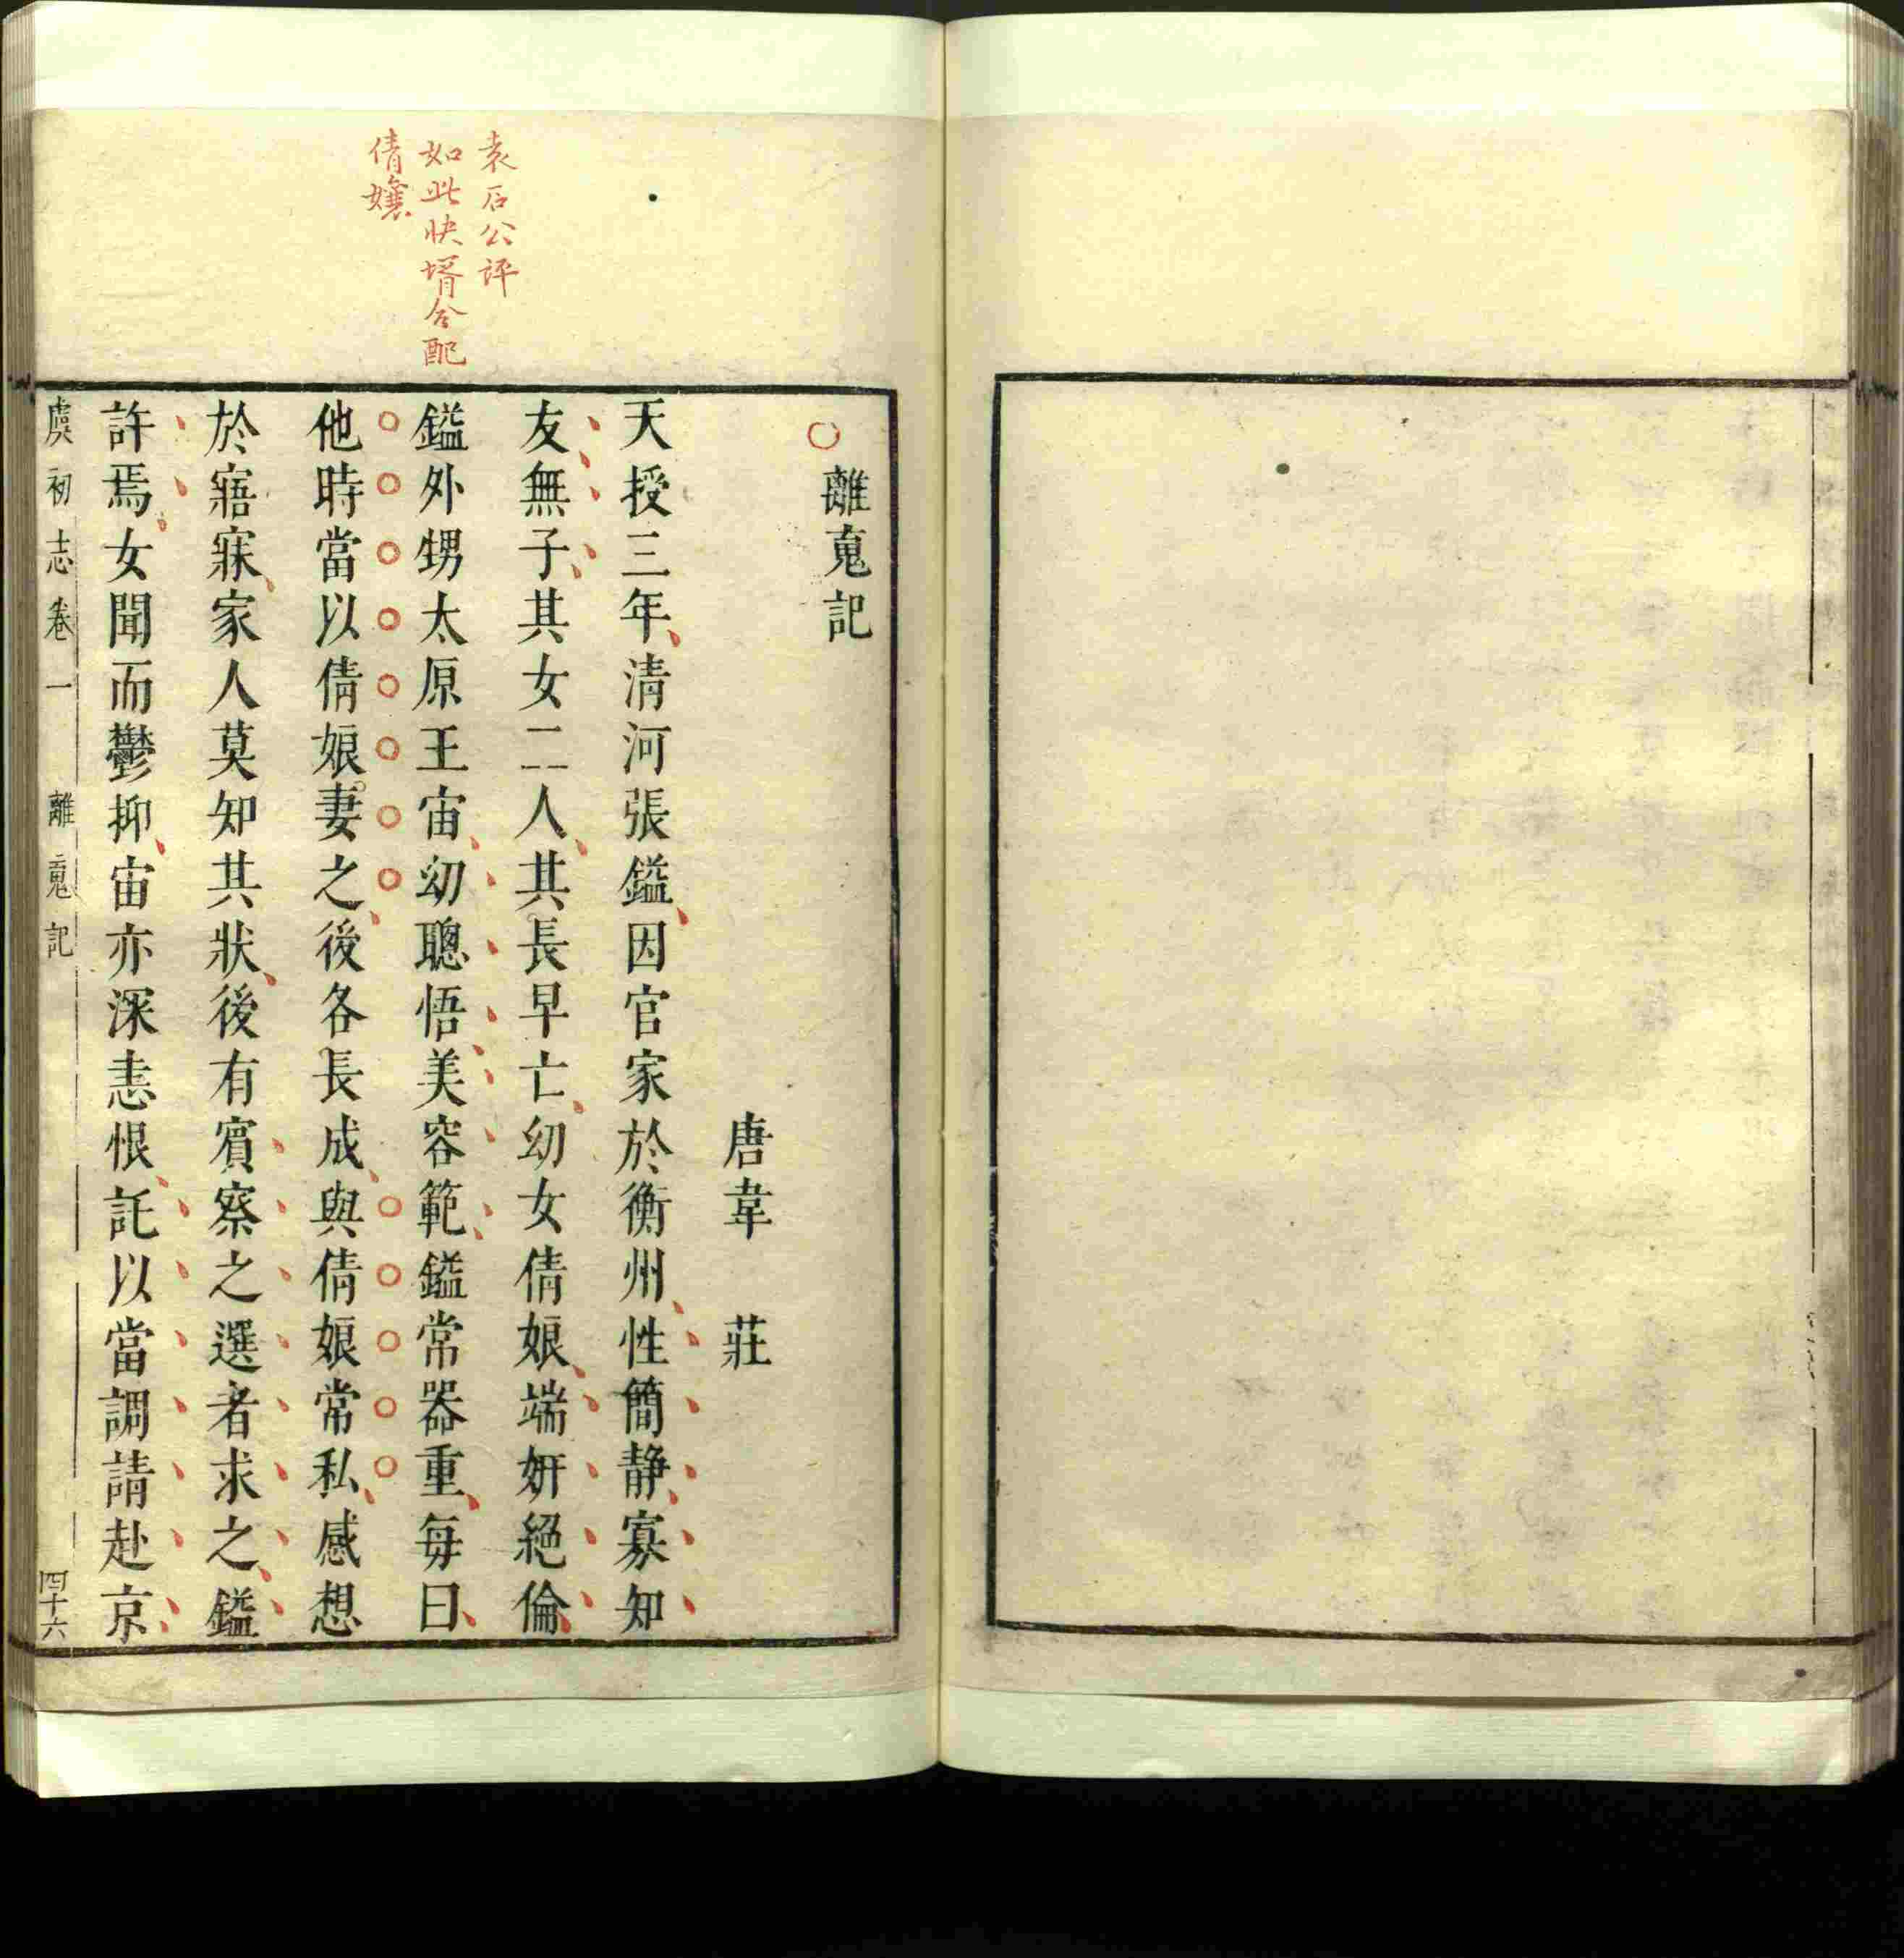 袁石公評
如此快壻合配
倩孃
離䰟記
唐韋莊
天授三年清河張鎰因官家於衡州性簡静寡知
友無子其女二人其長早亡幼女倩娘端妍絕倫
鎰外甥太原王宙幼聰悟美容範鎰常器重每曰
他時當以倩娘妻之後各長成與倩娘常私感想
於寤寐家人莫知其狀後有賓察之選者求之鎰
許焉女聞而鬱抑宙亦深恚恨託以當調請赴京
虞初志卷一 離䰟記 四十六